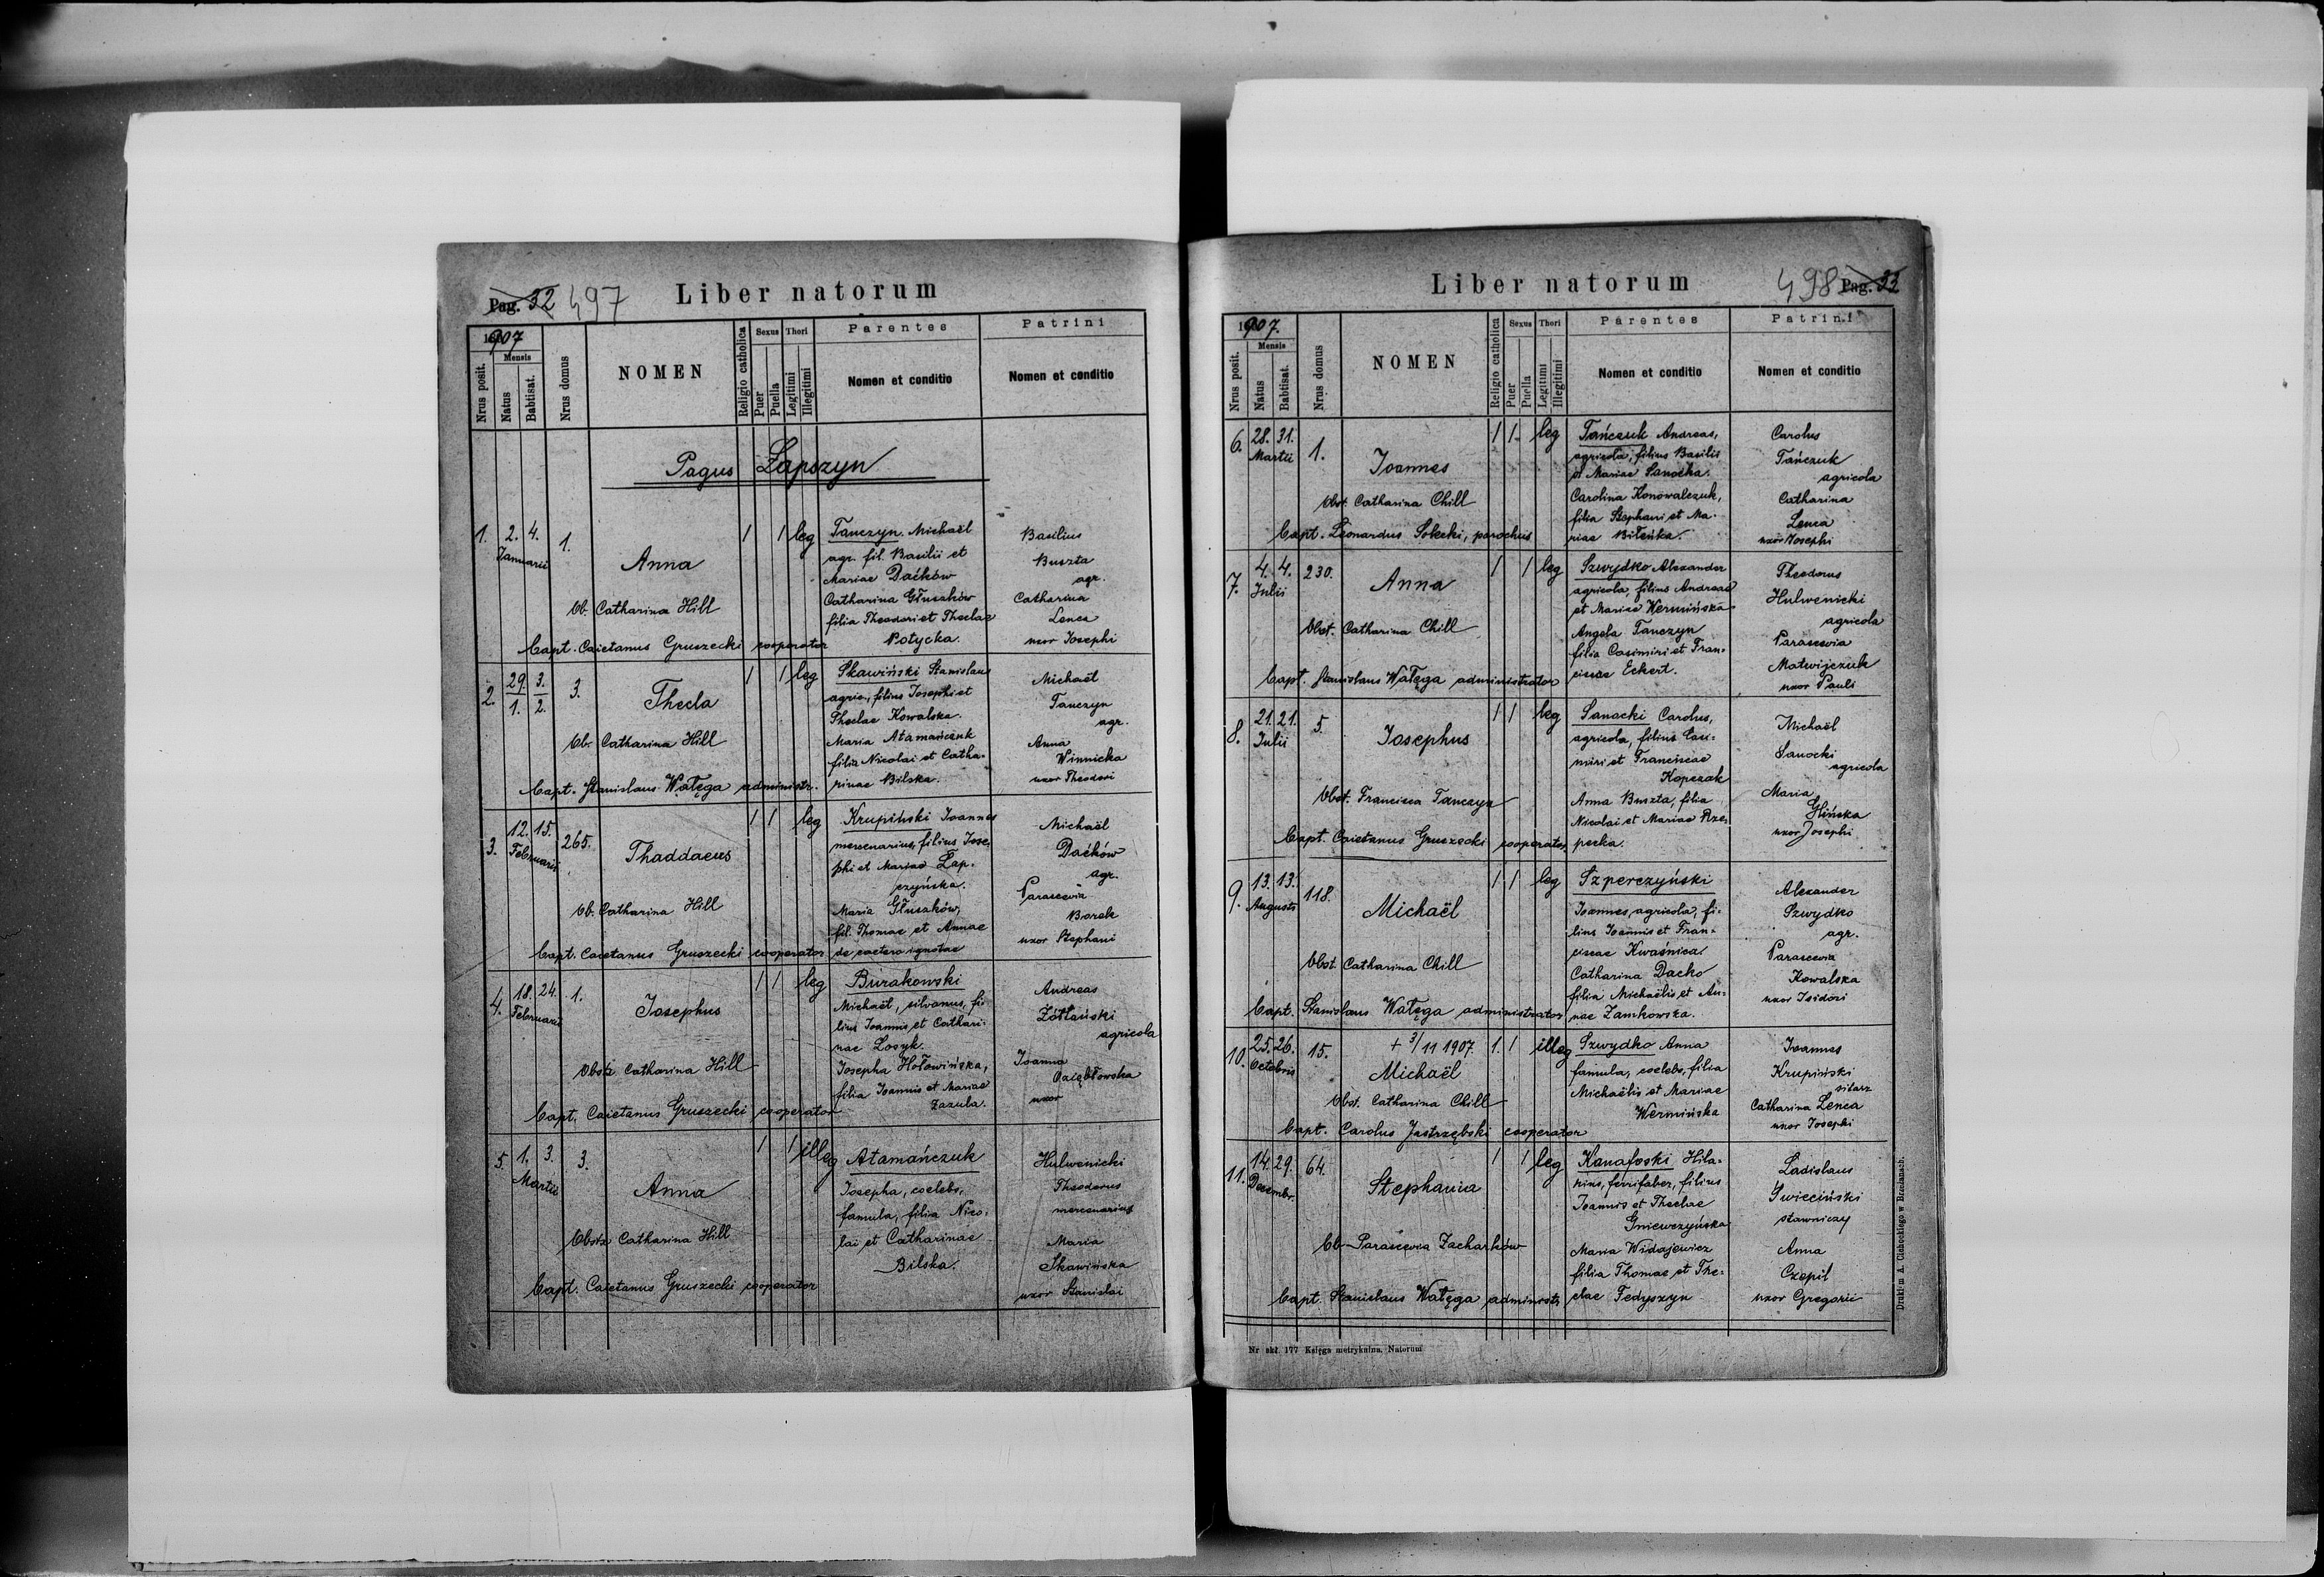 Pag. 32 497
Liber natorum
1907
Nrus posit.
Mensis
Natus
Babtisat.
Nrus domus
NOMEN
Religio catholica
Sexus
Puer
Puella
Thori
Legitimi
Illegitimi
Parentes
Nomen et conditio
Patrini
Nomen et conditio
Pagus Łapszyn
1. 2. 4. Januarii 1.
Anna
1 1 leg
Tanczyn Michaël
agr. fil. Basilii et
Mariae Daćków
Catharina Głuszków
filia Theodori et Theclae
Potycka.
Basilius
Buszta
agr.
Catharina
Lenca
uxor Josephi
Ob. Catharina Hill
Bapt. Caietanus Gruszecki cooperator
2. 29. 3. 3.
1. 2.
Thecla
1 1 leg
Skawiński Stanislaus
agric., filius Josephi et
Theclae Kowalska.
Maria Atamańczuk
filia Nicolai et Catha-
rinae Bilska.
Michaël
Tanczyn
agr.
Anna
Winnicka
uxor Theodori
Ob. Catharina Hill
Bapt. Stanislaus Wałęga administr.
3. 12. 15. Februarii 265.
Thaddaeus
1 1 leg
Krupiński Joannes
mercenarius, filius Jose-
phi et Mariae Łap-
czyńska.
Maria Głuszków,
fil. Thomae et Annae
de caetero ignotae
Michaël
Daćków
agr.
Parascevia
Borek
uxor Stephani
Ob. Catharina Hill
Bapt. Caietanus Gruszecki cooperator
4. 18. 24. Februarii 1.
Josephus
1 1 leg
Burakowski
Michaël, silvanus, fi-
lius Joannis et Cathari-
nae Łosyk.
Josepha Hołowińska,
filia Joannis et Mariae
Zazula.
Andreas
Żółtański
agricola
Joanna
uxor
Obstz Catharina Hill
Bapt. Caietanus Gruszecki cooperator
5. 1. 3. Martii 3.
Anna
1 1 illeg
Atamańczuk
Josepha, coelebs,
famula, filia Nico-
lai et Catharinae
Bilska.
Hulwenicki
Theodorus
mercenarius
Maria
Skawińska
uxor Stanislai
Obstz Catharina Hill
Bapt. Caietanus Gruszecki cooperator
Liber natorum
498 Pag. 33
1907.
Nrus posit.
Mensis
Natus
Babtisat.
Nrus domus
NOMEN
Religio catholica
Sexus
Puer
Puella
Thori
Legitimi
Illegitimi
Parentes
Nomen et conditio
Patrini
Nomen et conditio
6. 28. 31. Martii 1.
Joannes
1 1 leg
Tańczuk Andreas,
agricola, filius Basilii
et Mariae Sanocka.
Carolina Konowalczuk,
filia Stephani et Ma-
riae Bileńka.
Carolus
Tańczuk
agricola
Catharina
Lenca
uxor Josephi
Obst. Catharina Chill
Bapt. Leonardus Solecki, parochus
7. 4. 4. Julii 230.
Anna
1 1 leg
Szwydko Alexander
agricola, filius Andreae
et Mariae Wermińska
Angela Tanczyn
filia Casimiri et Fran-
ciscae Eckert.
Theodorus
Hulwenicki
agricola
Parascevia
Matwijczuk
uxor Pauli
Obst. Catharina Chill
Bapt. Stanislaus Wałęga administrator
8. 21. 21. Julii 5.
Josephus
1 1 leg
Sanocki Carolus,
agricola, filius Casi-
miri et Franciscae
Kopczak
Anna Buszta, filia
Nicolai et Mariae Rze-
pecka.
Michaël
Sanocki
agricola
Maria
Glińska
uxor Josephi
Obst. Francisca Tanczyn
Bapt. Caietanus Gruszecki cooperator
9. 13. 13. Augusti 118.
Michaël
1 1 leg
Szperczyński
Joannes, agricola, fi-
lius Joannis et Fran-
ciscae Kwaśnica
Catharina Dacko
filia Michaëlis et An-
nae Zamkowska.
Alexander
Szwydko
agr.
Parascevia
Kowalska
uxor Isidori
Obst. Catharina Chill
Bapt. Stanislaus Wałęga administrator
10. 25. 26. Octobris 15.
+ 3/11 1907
Michaël
1. 1 illeg
Szwydko Anna
famula, coelebs, filia
Michaëlis et Mariae
Wermińska
Joannes
Krupiński
sitarz
Catharina Lenca
uxor Josephi
Obst. Catharina Chill
Bapt. Carolus Jastrzębski cooperator
11. 14. 29. Decembr. 64.
Stephania
1 1 leg
Kanafoski Hila-
rius, ferrifaber, filius
Joannis et Theclae
Gniewczyńska
Maria Widajewicz
filia Thomae et The-
clae Fedyszyn
Ladislaus
Swieciński
stawniczy
Anna
Czepil
uxor Gregorii
Ob. Parascevia Zacharków
Bapt. Stanislaus Wałęga administr.
Nr skł. 177 Księga metrykalna. Natorum
Drukiem A. Cichockiego w Brzeżanach.